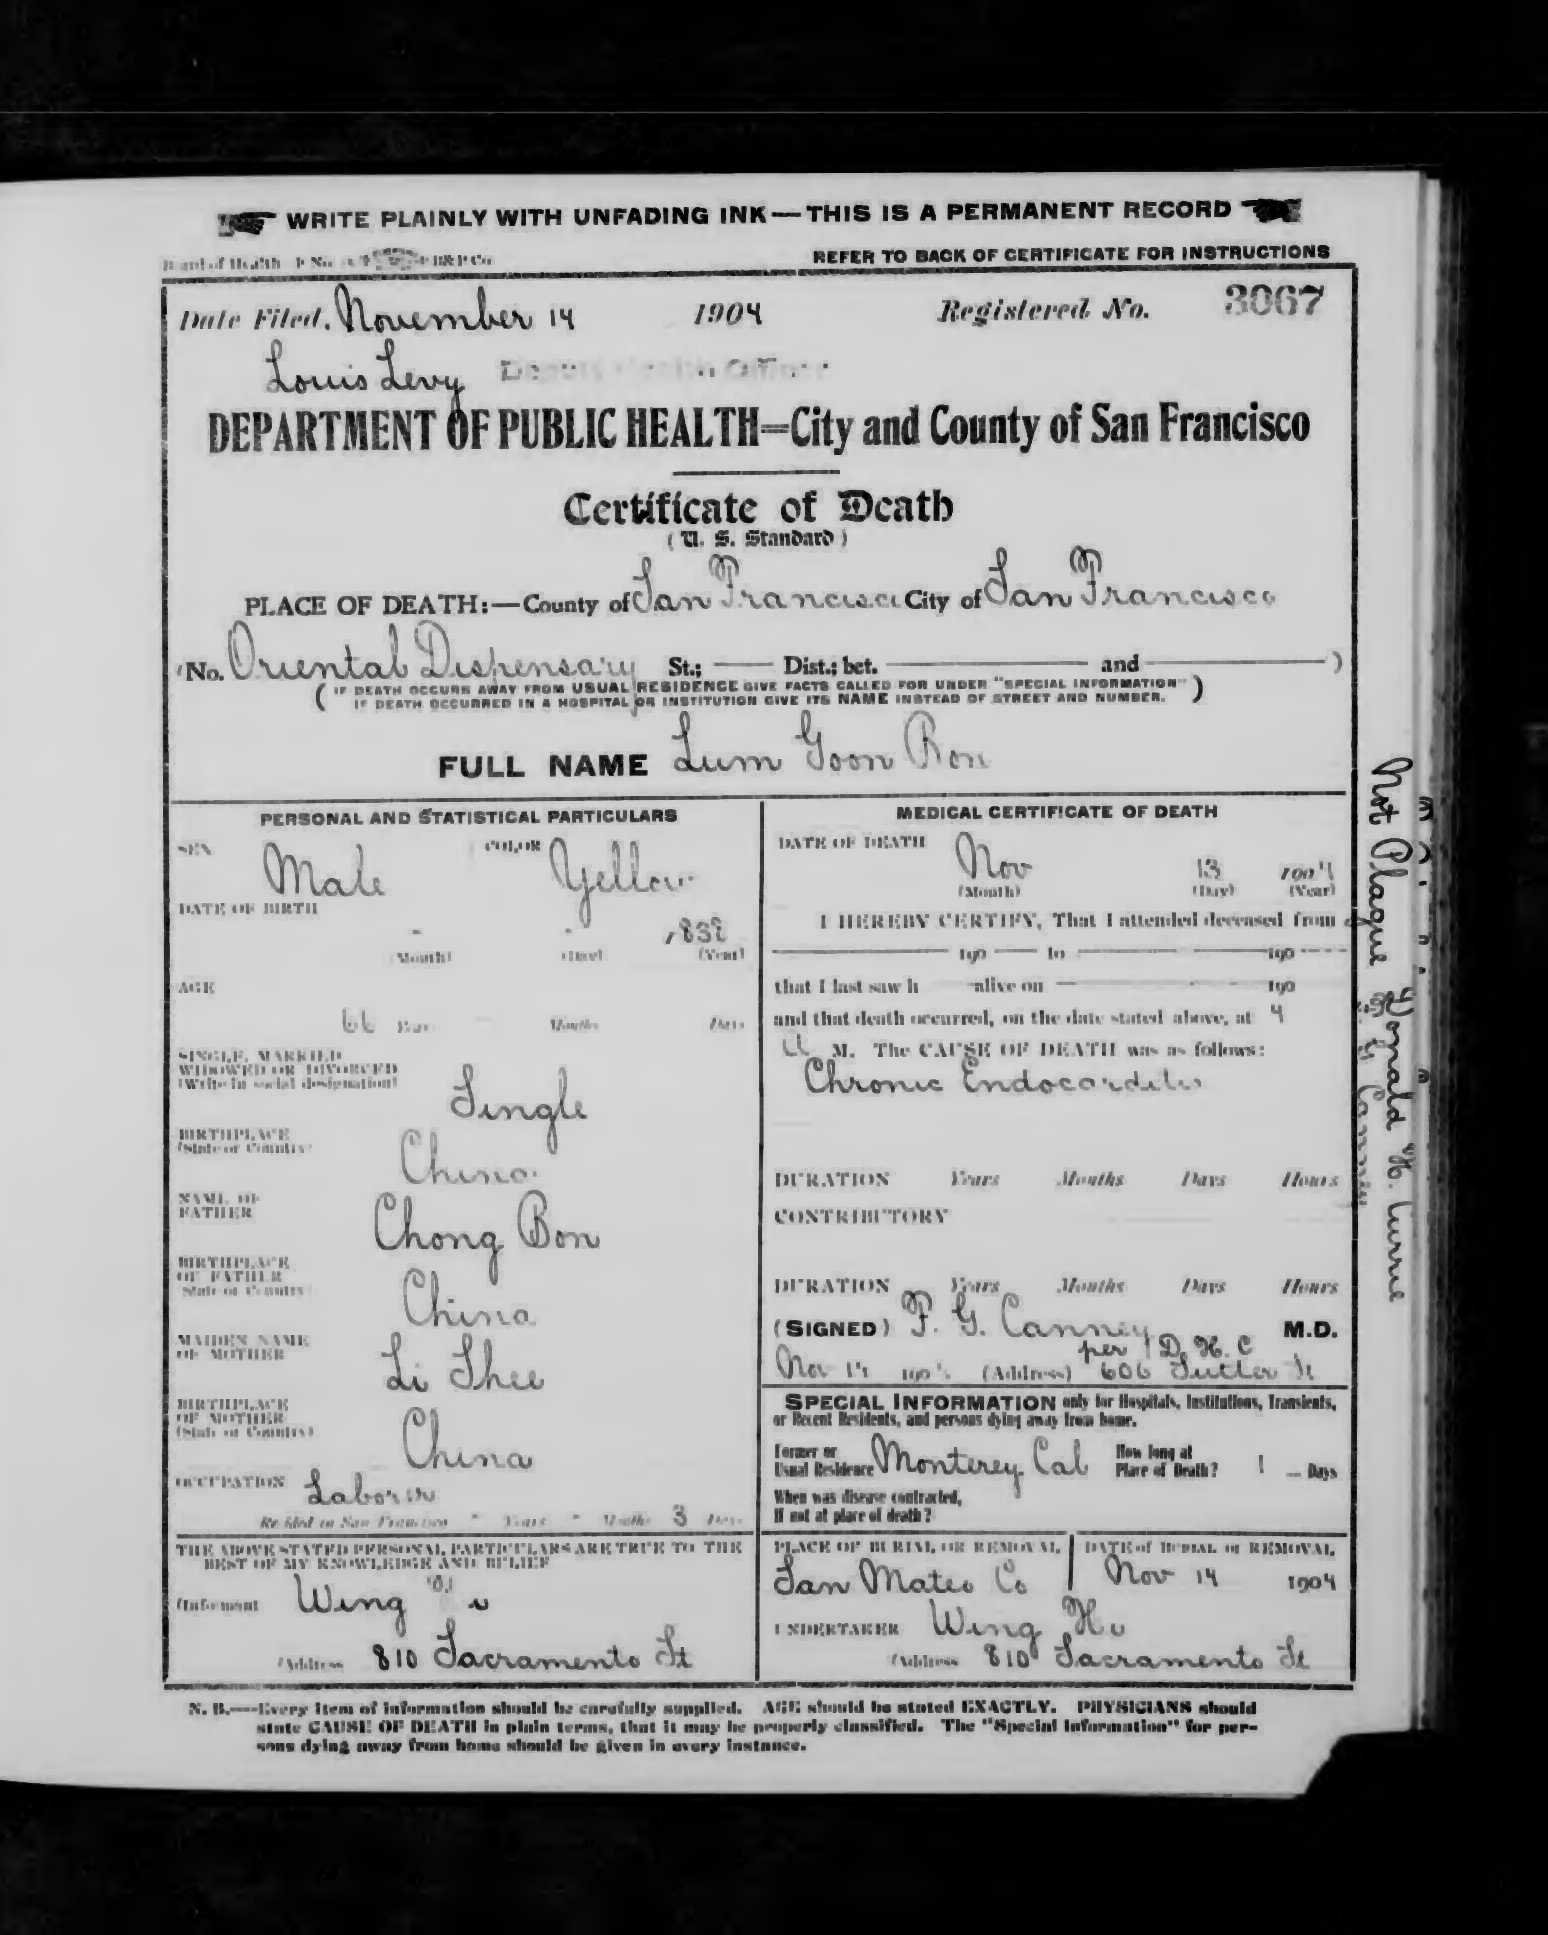 WRITE PLAINLY WITH UNFADING INK—THIS IS A PERMANENT RECORD
Board of Health
REFER TO BACK OF CERTIFICATE FOR INSTRUCTIONS
Date Filed, November 14 1904 Registered No. 3067
Louis Levy Deputy Health Officer
DEPARTMENT OF PUBLIC HEALTH=City and County of San Francisco
Certificate of Death
(U. S. Standard)
PLACE OF DEATH:—County of San Francisco City of San Francisco
(No. Oriental Dispensary St.; —— Dist.; bet. —— and ——)
(IF DEATH OCCURS AWAY FROM USUAL RESIDENCE GIVE FACTS CALLED FOR UNDER "SPECIAL INFORMATION"
IF DEATH OCCURRED IN A HOSPITAL OR INSTITUTION GIVE ITS NAME INSTEAD OF STREET AND NUMBER.)
FULL NAME Lum Goon Bon
PERSONAL AND STATISTICAL PARTICULARS
SEX Male COLOR Yellow
DATE OF BIRTH
- - 1838
(Month) (Day) (Year)
AGE
66 Years Months Days
SINGLE, MARRIED
WIDOWED OR DIVORCED
(Write in social designation)
Single
BIRTHPLACE
(State or Country)
China
NAME OF
FATHER
Chong Bon
BIRTHPLACE
OF FATHER
(State or Country)
China
MAIDEN NAME
OF MOTHER
Li Shee
BIRTHPLACE
OF MOTHER
(State or Country)
China
OCCUPATION Laborer
Resided in San Francisco - Years - Months 3 Days
THE ABOVE STATED PERSONAL PARTICULARS ARE TRUE TO THE
BEST OF MY KNOWLEDGE AND BELIEF
(Informant Wing
(Address 810 Sacramento St
MEDICAL CERTIFICATE OF DEATH
DATE OF DEATH Nov 13 1904
(Month) (Day) (Year)
I HEREBY CERTIFY, That I attended deceased from
—— 190 —— to —— 190 ——
that I last saw h alive on —— 190
and that death occurred, on the date stated above, at 4
a M. The CAUSE OF DEATH was as follows:
Chronic Endocarditis
DURATION Years Months Days Hours
CONTRIBUTORY
DURATION Years Months Days Hours
(SIGNED) F. G. Canney M.D.
per D. H. C
Nov 14 1904 (Address) 606 Sutter St
SPECIAL INFORMATION only for Hospitals, Institutions, Transients,
or Recent Residents, and persons dying away from home.
Former or
Usual Residence Monterey Cal How long at
Place of Death? 1 Days
When was disease contracted,
If not at place of death?
PLACE OF BURIAL OR REMOVAL DATE of BURIAL or REMOVAL
San Mateo Co Nov 14 1904
UNDERTAKER Wing Hu
(Address 810 Sacramento St
N. B.—Every item of information should be carefully supplied. AGE should be stated EXACTLY. PHYSICIANS should
state CAUSE OF DEATH in plain terms, that it may be properly classified. The "Special Information" for per-
sons dying away from home should be given in every instance.
Not Plague Donald H. Currie
F. G. Canney